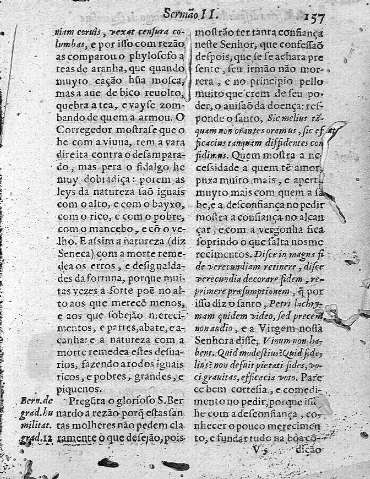 Sermão II.
157
niam coruis, vexat censura co-
lumbas, e por isso com rezão
as comparou o phylosofo a
teas de aranha, que quando
muyto cação hũa mosca,
mas a aue de bico reuolto,
quebra a tea, e vayse zom-
bando de quem a armou. O
Corregedor mostrase que o
he com a viuua, tem a vara
direita contra o desampara-
do, mas pera o fidalgo he
muy dobradiça: porem as
leys da natureza saõ iguais
com o alto, e com o bayxo,
com o rico, e com o pobre,
com o mancebo, e cõ o ve-
lho. E assim a natureza (diz
Seneca) com a morte reme-
dea os erros, e desigualda-
des da fortuna, porque mui-
tas vezes a sorte poẽ no al-
to aos que merecẽ menos,
e aos que sobejão mereci-
mentos, e partes, abate, e a-
canha: e a natureza com a
morte remedea estes desua-
rios, fazendo a todos iguais
ricos, e pobres, grandes, e
piquenos.
Bern. de
grad. hu
militat.
grad. 12
Pregũta o glorioso S. Ber
nardo a rezão porq̃ estas san-
tas molheres não pedem cla-
ramente o que desejão, pois
mostrão ter tanta confiança
neste Senhor, que confessaõ
despois, que se se achara pre
sente, seu irmão não mor-
rera, e no principio pello
muito que crem de seu po-
der, o auisaõ da doença: res-
ponde o santo, Sic melius tã-
quam non orantes oramus, sic ef
ficacius tanquam diffidentes con
fidimus. Quem mostra a ne-
cessidade a quem tẽ amor,
puxa muito mais, e aperta
muyto mais com quem a sa
be, e a desconfiança no pedir
mostra a confiança no alcan
çar, e com a vergonha fica
soprindo o que falta nos me
recimentos. Discer in magna fi
de verecundiam retinere, disce
verecundia decorare fidem, re-
primere præsumptionem, q̃ por
isso diz o santo, Petri lachry-
mam quidem video, sed precem
non audio, e a Virgem nossa
Senhora disse, Vinum non ha-
bent. Quid modestius? Quid fide-
lius? non desuit pietati fides, vo-
ci grauitas, efficacia voto. Pare
ce bem cortesia, e comedi-
mento no pedir, porque isso
he com a desconfiança, co-
nhecer o pouco merecimen
to, e fundar tudo na boa cõ-
V 3
dição